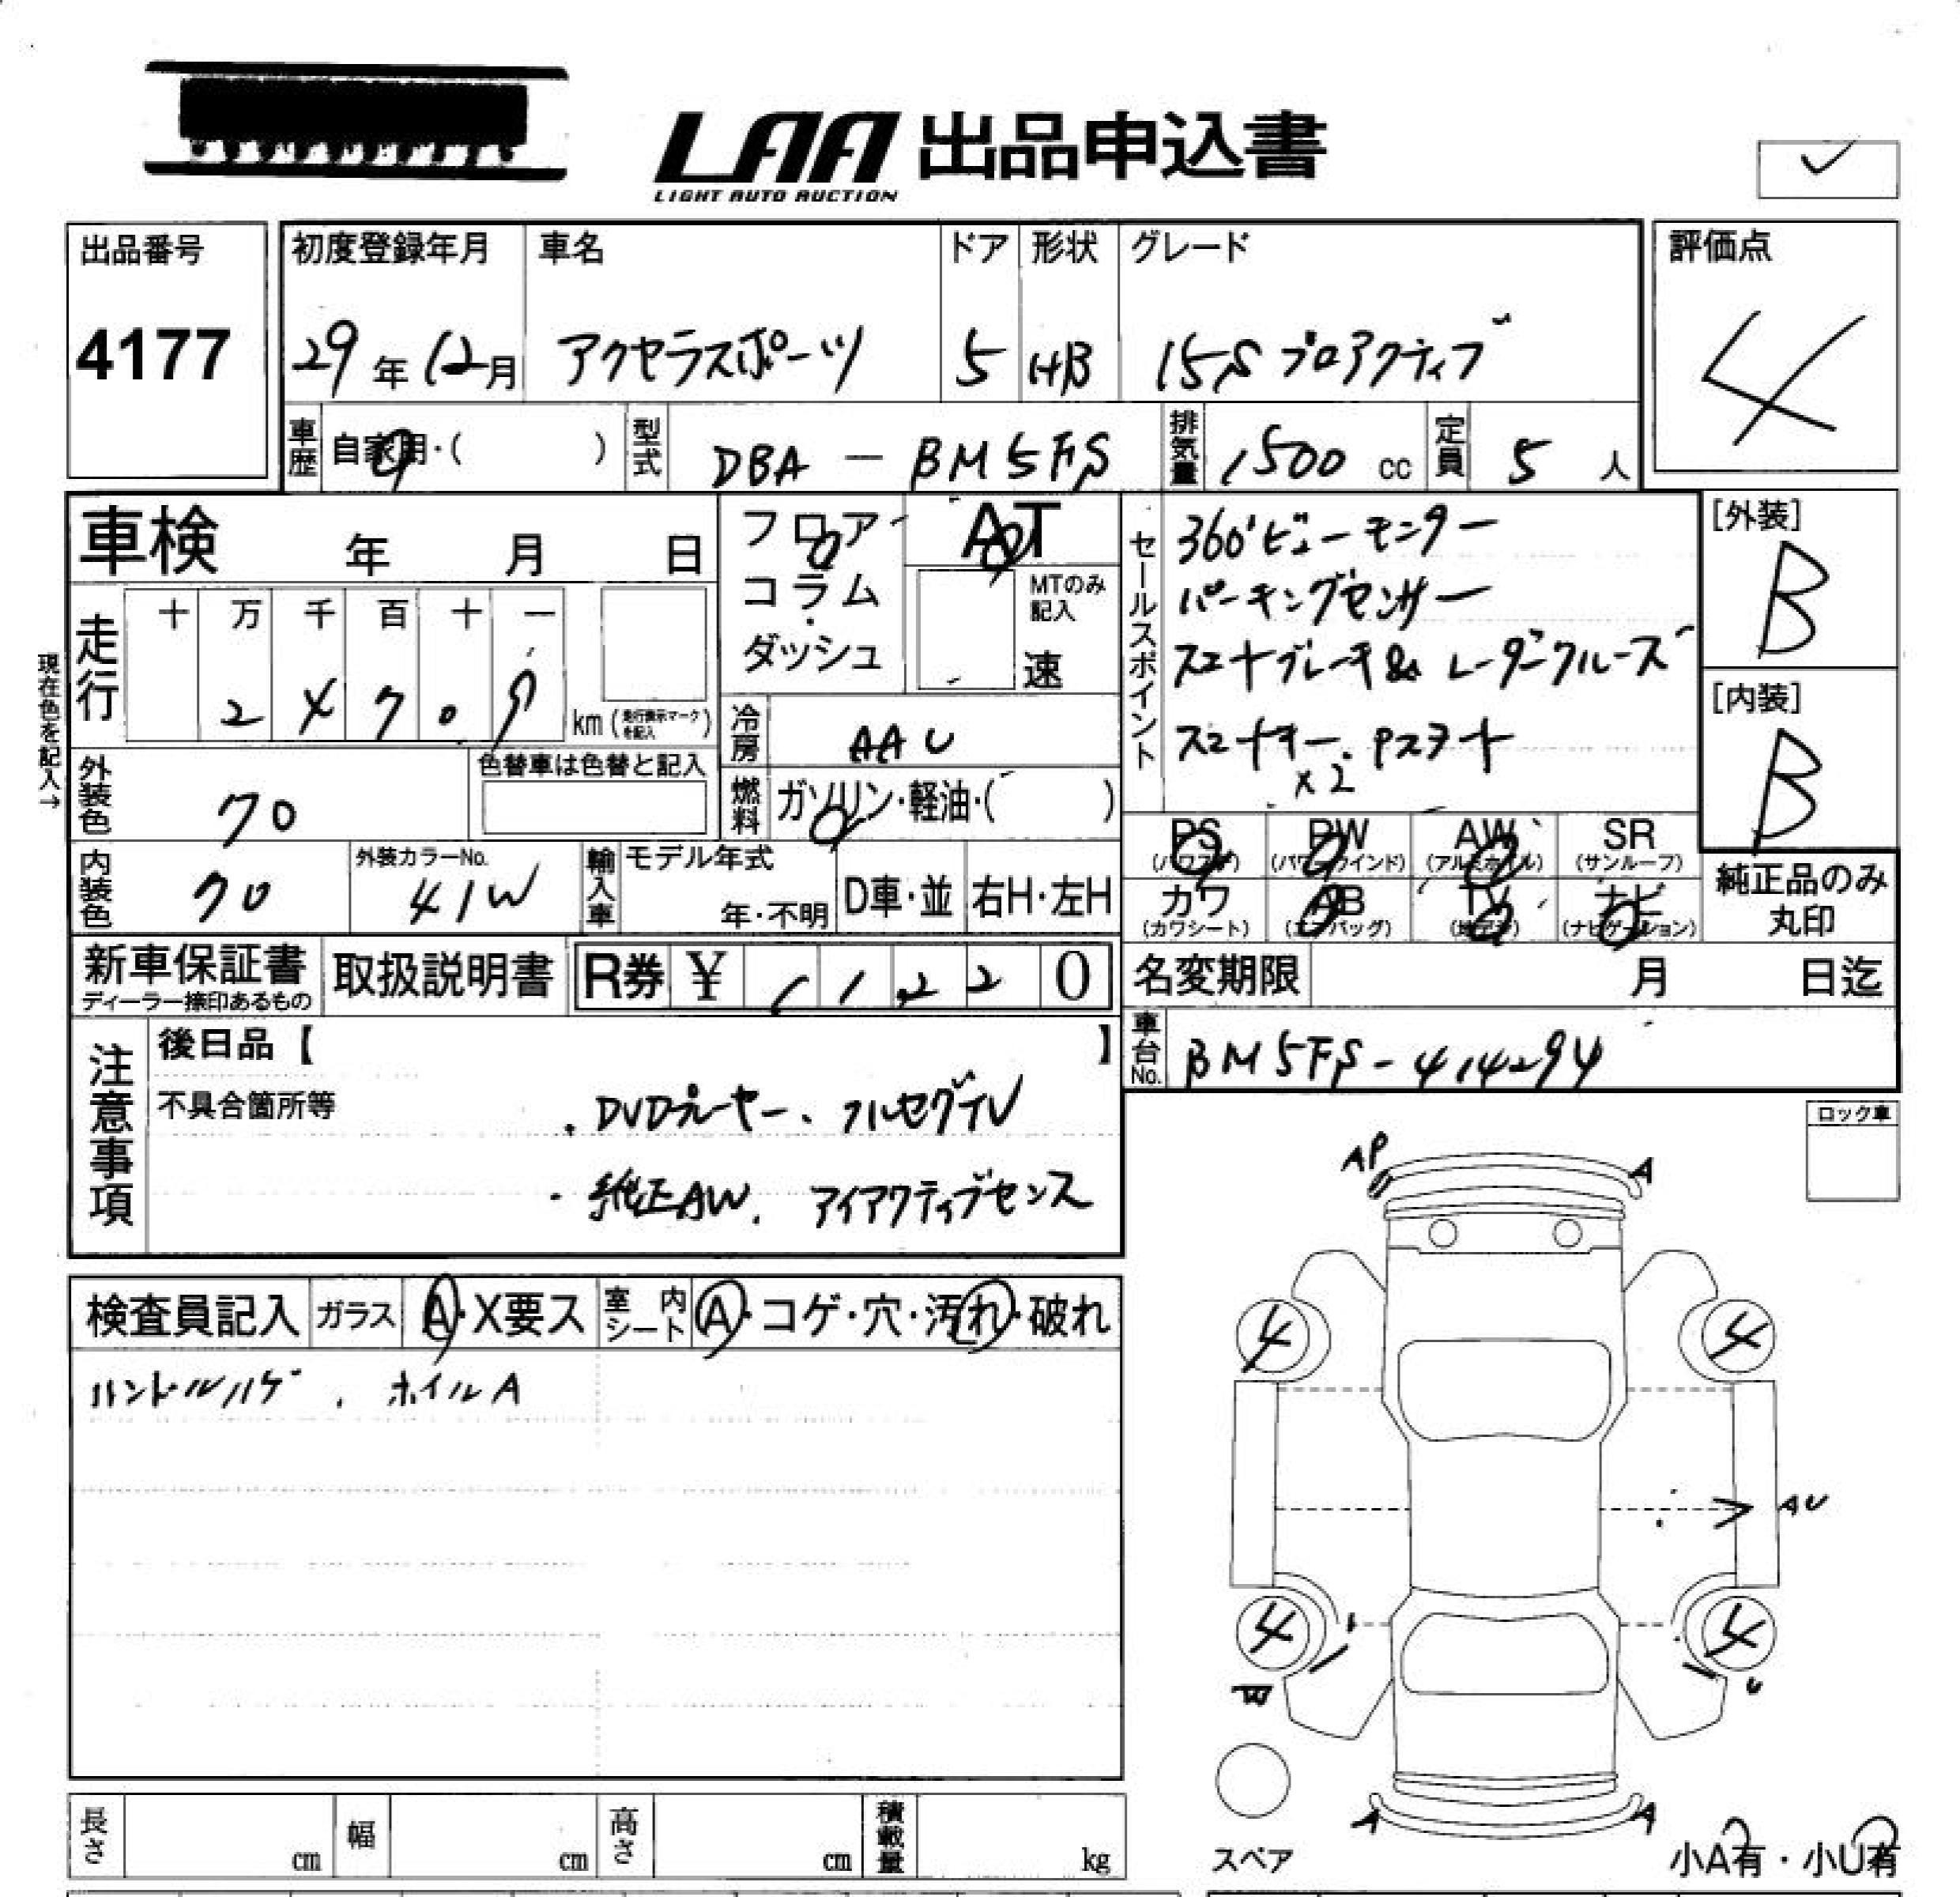 LAA 出品申込書
LIGHT AUTO AUCTION
出品番号
4177
初度登録年月
29年12月
車名
アクセラスポーツ
ドア
5
形状
HB
グレード
15S プロアクティブ
評価点
4
車歴
自家用・( )
型式
DBA - BM5FS
排気量
1500 cc
定員
5 人
車検 年 月 日
フロア
コラム
ダッシュ
AT
MTのみ
記入
速
セールスポイント
360°ビューモニター
パーキングセンサー
スマートブレーキ& レーダークルーズ
スマートキー. Pスタート
x2
[外装]
B
[内装]
B
現在色を記入→
走行
十 万 千 百 十 一
km (走行表示マークを記入)
冷房
AAC
外装色
クロ
色替車は色替と記入
燃料
ガソリン・軽油・( )
PS
(パワステ)
PW
(パワーウインド)
AW
(アルミホイル)
SR
(サンルーフ)
カワ
(カワシート)
AB
(エアバッグ)
TV
(地デジ)
ナビ
(ナビゲーション)
純正品のみ
丸印
内装色
クロ
外装カラーNo.
41W
輸入車
モデル年式
年・不明
D車・並
右H・左H
新車保証書
ディーラー捺印あるもの
取扱説明書
R券 ¥ 1 1 2 2 0
名変期限 月 日迄
車台No.
BM5FS-414294
注意事項
後日品【 】
不具合箇所等
. DVDプレーヤー、フルセグTV
・純正AW. アイアクティブセンス
ロック車
検査員記入
ガラス
A・X要ス
室内シート
A・コゲ・穴・汚れ・破れ
ハンドルハゲ . ホイルA
AP
A
4
4
AU
4
4
W
U
A
A
スペア
小A有・小U有
長さ cm
幅 cm
高さ cm
積載量 kg